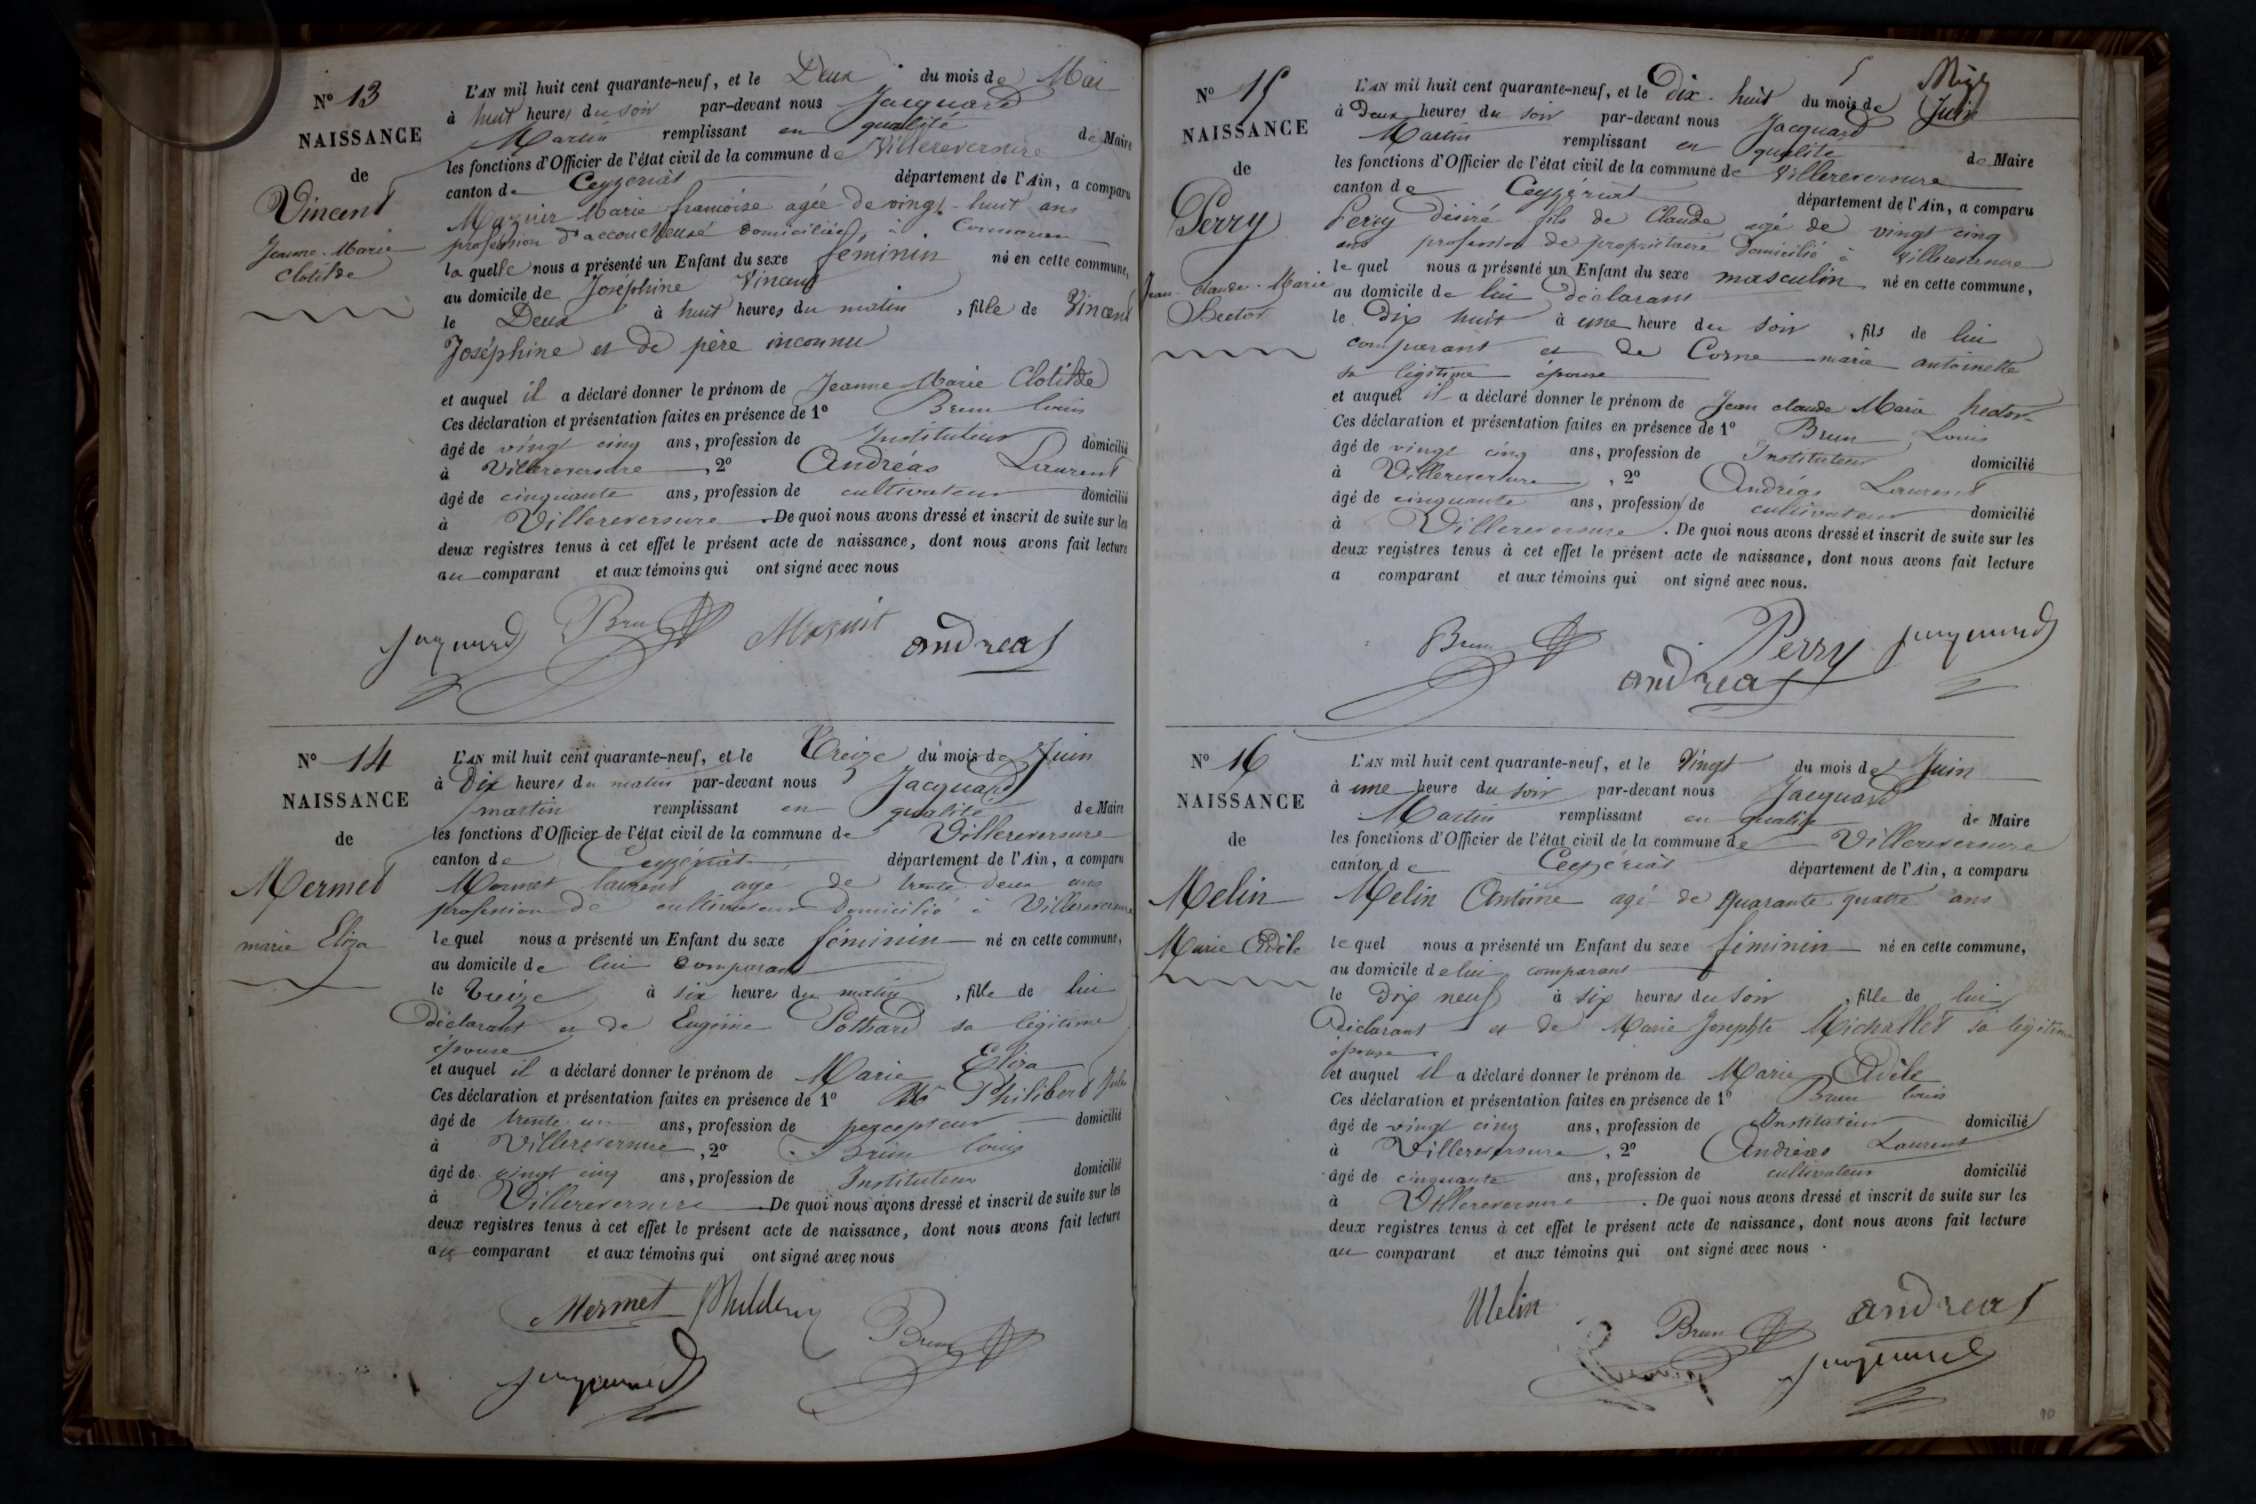 N° 13
NAISSANCE
de
Vincent
Jeanne-Marie
Clotilde
L'AN mil huit cent quarante-neuf, et le Deux du mois de Mai
à huit heures du soir par-devant nous Jacquard
Martin remplissant en qualité de Maire
les fonctions d'Officier de l'état civil de la commune de Villereversure
canton de Ceyzériat département de l'Ain, a comparu
Marie françoise agée de vingt-huit ans
profession d'accoucheuse domiciliée à
la quelle nous a présenté un Enfant du sexe féminin né en cette commune,
au domicile de Joséphine Vincent
le Deux à huit heures du matin, fille de Vincent
Joséphine et de père inconnu
et auquel il a déclaré donner le prénom de Jeanne Marie Clotilde
Ces déclaration et présentation faites en présence de 1° Brun Louis
âgé de vingt cinq ans, profession de Instituteur domicilié
à Villereversure, 2° Andréas Laurent
âgé de cinquante ans, profession de cultivateur domicilié
à Villereversure. De quoi nous avons dressé et inscrit de suite sur les
deux registres tenus à cet effet le présent acte de naissance, dont nous avons fait lecture
au comparant et aux témoins qui ont signé avec nous
Jacquard Brun andreas
N° 14
NAISSANCE
de
Mermet
marie Eliza
L'AN mil huit cent quarante-neuf, et le Treize du mois de Juin
à Dix heures du matin par-devant nous Jacquard
martin remplissant en qualité de Maire
les fonctions d'Officier de l'état civil de la commune de Villereversure
canton de Ceyzériat département de l'Ain, a comparu
Mermet laurent agé de trente deux ans
profession de cultivateur domicilié à Villereversure
le quel nous a présenté un Enfant du sexe féminin né en cette commune,
au domicile de lui comparant
le treize à six heures du matin, fille de lui
déclarant et de Eugénie Pothard sa légitime
épouse
et auquel il a déclaré donner le prénom de Marie Eliza
Ces déclaration et présentation faites en présence de 1° Philibert
âgé de trente un ans, profession de percepteur domicilié
à Villereversure, 2° Brun Louis
âgé de vingt cinq ans, profession de Instituteur domicilié
à Villereversure. De quoi nous avons dressé et inscrit de suite sur les
deux registres tenus à cet effet le présent acte de naissance, dont nous avons fait lecture
au comparant et aux témoins qui ont signé avec nous
Mermet Brun
Jacquard
N° 15
NAISSANCE
de
Perry
Jean-claude-Marie
Hector
L'AN mil huit cent quarante-neuf, et le Dix-huit du mois de
Juin
à Deux heures du soir par-devant nous Jacquard
Martin remplissant en qualité de Maire
les fonctions d'Officier de l'état civil de la commune de Villereversure
canton de Ceyzériat département de l'Ain, a comparu
Perry désiré fils de Claude agé de vingt cinq
ans profession de propriétaire domicilié à Villereversure
le quel nous a présenté un Enfant du sexe masculin né en cette commune,
au domicile de lui déclarant
le Dix huit à une heure du soir, fils de lui
comparant et de Corne marie antoinette
sa légitime épouse
et auquel il a déclaré donner le prénom de Jean claude Marie hector
Ces déclaration et présentation faites en présence de 1° Brun Louis
âgé de vingt cinq ans, profession de Instituteur domicilié
à Villereversure, 2° Andréas Laurent
âgé de cinquante ans, profession de cultivateur domicilié
à Villereversure. De quoi nous avons dressé et inscrit de suite sur les
deux registres tenus à cet effet le présent acte de naissance, dont nous avons fait lecture
a comparant et aux témoins qui ont signé avec nous.
Brun Perry Jacquard
andreas
N° 16
NAISSANCE
de
Melin
Marie Adèle
L'AN mil huit cent quarante-neuf, et le Vingt du mois de Juin
à une heure du soir par-devant nous Jacquard
Martin remplissant en qualité de Maire
les fonctions d'Officier de l'état civil de la commune de Villereversure
canton de Ceyzériat département de l'Ain, a comparu
Melin Antoine agé de quarante quatre ans
le quel nous a présenté un Enfant du sexe féminin né en cette commune,
au domicile de lui comparant
le Dix neuf à six heures du soir, fille de lui
Déclarant et de Marie Josephte Michallet sa légitime
épouse
et auquel il a déclaré donner le prénom de Marie Adèle
Ces déclaration et présentation faites en présence de 1° Brun Louis
âgé de vingt cinq ans, profession de Instituteur domicilié
à Villereversure, 2° Andréas Laurent
âgé de cinquante ans, profession de cultivateur domicilié
à Villereversure. De quoi nous avons dressé et inscrit de suite sur les
deux registres tenus à cet effet le présent acte de naissance, dont nous avons fait lecture
au comparant et aux témoins qui ont signé avec nous.
Melin Brun andreas
Jacquard
10